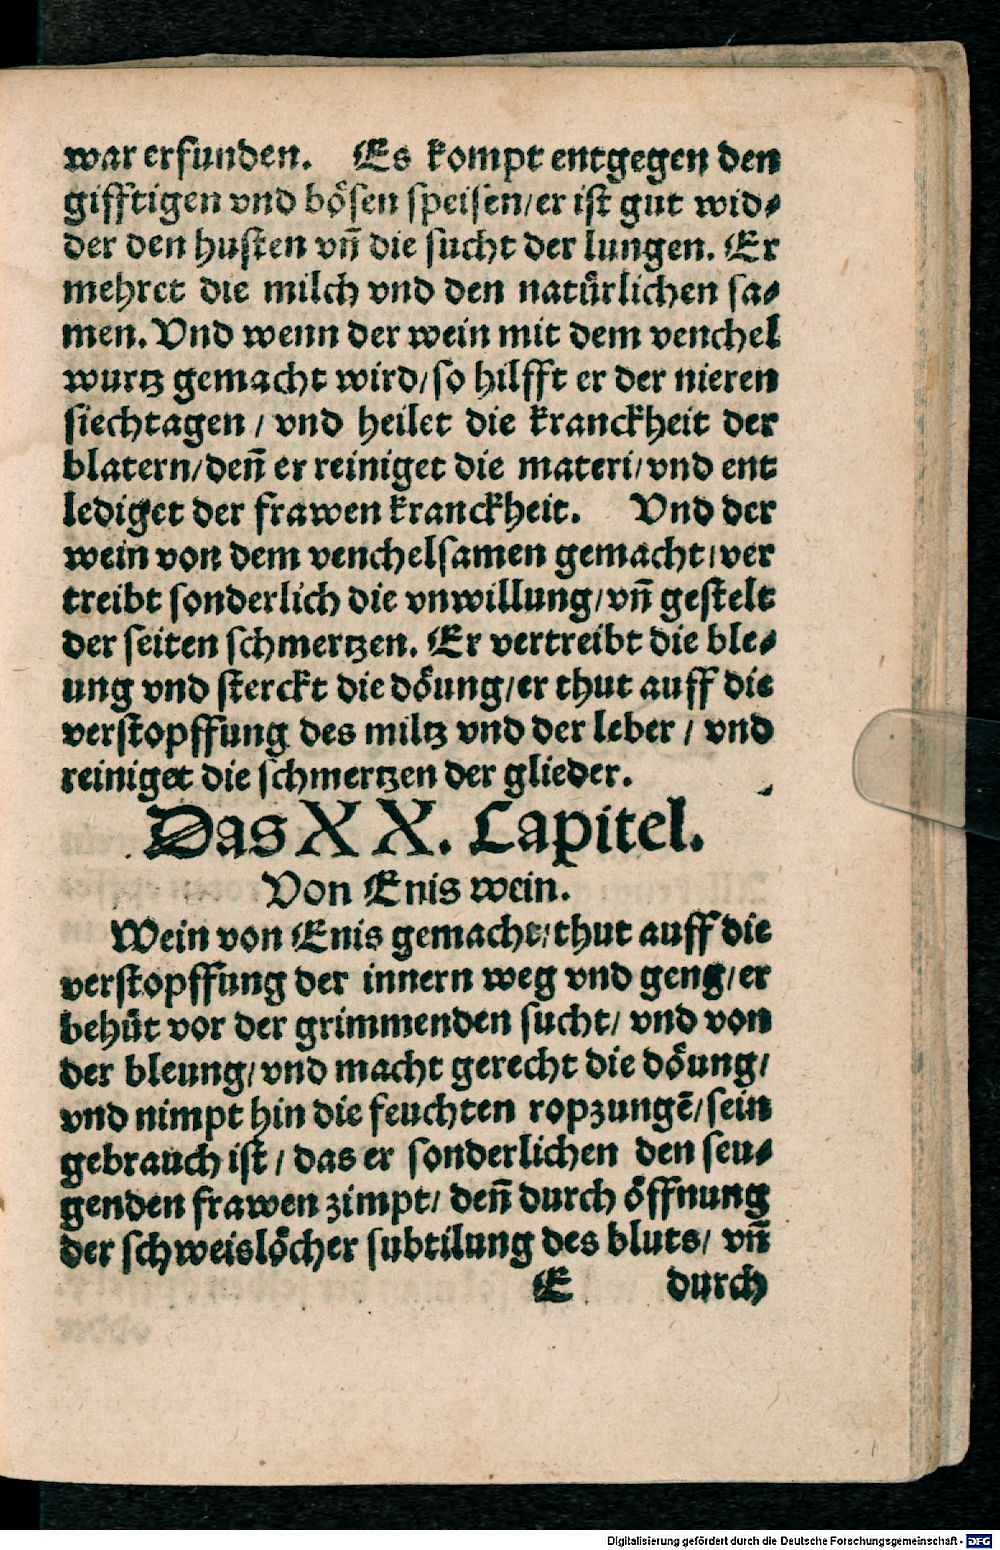 war erfunden. Es kompt entgegen den
gifftigen vnd bösen speisen/er ist gut wid⸗
der den husten vñ die sucht der lungen. Er
mehret die milch vnd den natürlichen sa⸗
men. Vnd wenn der wein mit dem venchel
wurtz gemacht wird/so hilfft er der nieren
siechtagen / vnd heilet die kranckheit der
blatern/deñ er reiniget die materi/vnd ent
lediget der frawen kranckheit. Vnd der
wein von dem venchelsamen gemacht/ver
treibt sonderlich die vnwillung/vñ gestelt
der seiten schmertzen. Er vertreibt die ble⸗
ung vnd sterckt die döung/er thut auff die
verstopffung des miltz vnd der leber / vnd
reiniget die schmertzen der glieder.
Das XX. Capitel.
Von Enis wein.
Wein von Enis gemacht/thut auff die
verstopffung der innern weg vnd geng/er
behüt vor der grimmenden sucht/ vnd von
der bleung/vnd macht gerecht die döung/
vnd nimpt hin die feuchten ropzungẽ/sein
gebrauch ist / das er sonderlichen den seu⸗
genden frawen zimpt/ deñ durch öffnung
der schweislöcher subtilung des bluts/ vñ
E durch
Digitalisierung gefördert durch die Deutsche Forschungsgemeinschaft - DFG